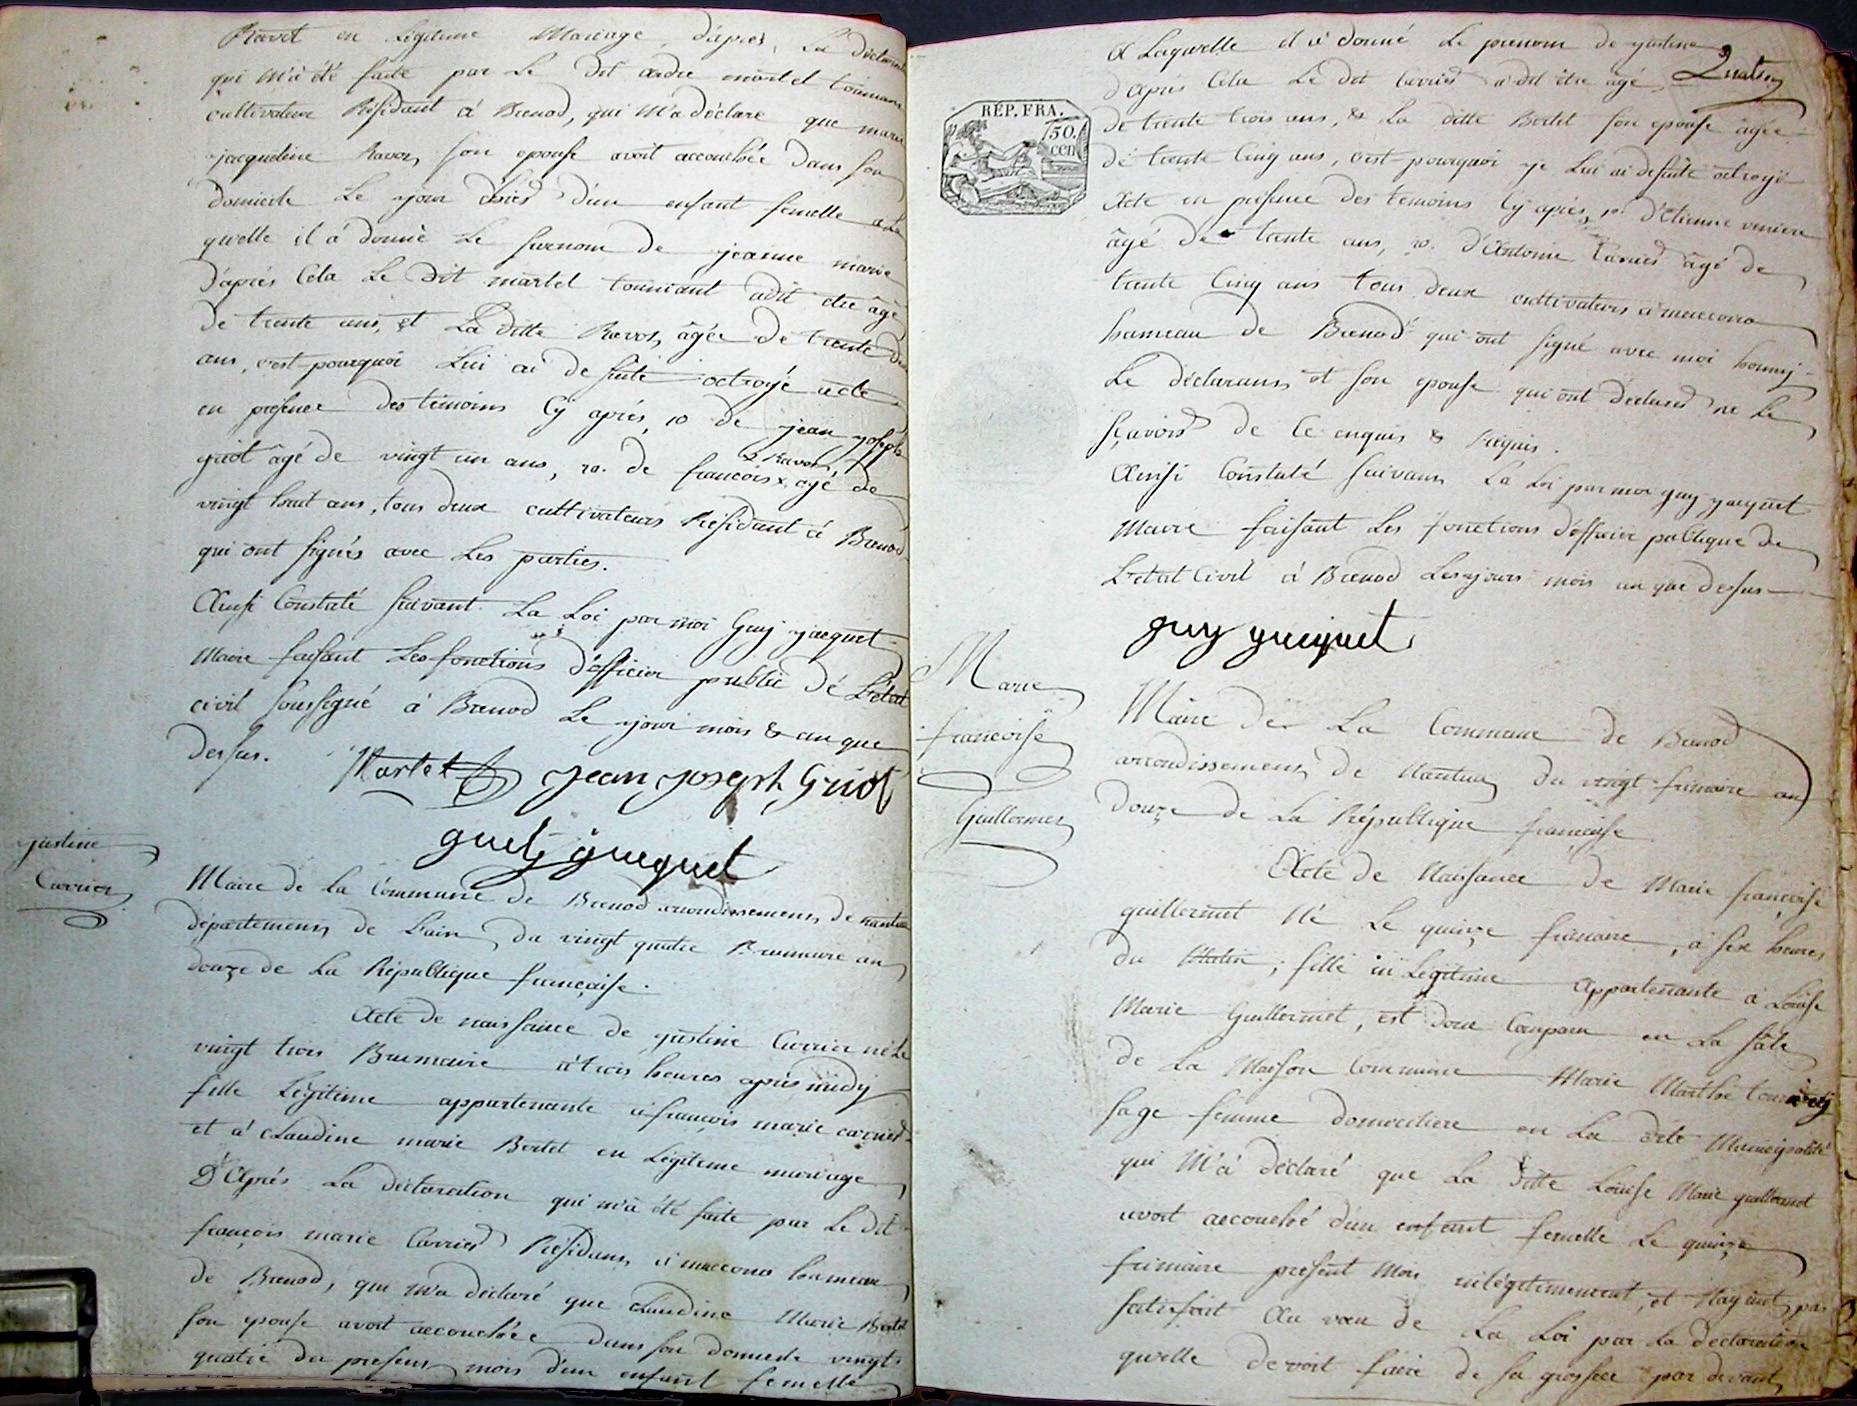 Ravet en Légitime Mariage, d'après, La déclaration
qui m'a été faite par Le dit andré martel tournant
cultivateur Résidant à Brenod, qui m'a déclaré que marie
jacqueline Ravet, son epouse avoit accouchée dans son
domicile Le jour d'hier d'un enfant femelle a La
quelle il a donné Le surnom de jeanne marie
d'après Cela Le dit martel tournant a dit etre âgé
de trente ans, et La ditte Ravet, âgée de trente
ans, c'est pourquoi Lui ai de suite octroyé acte
en presence des témoins Cy après, 1o de jean joseph
griot âgé de vingt un ans, 2o. de francois x âgé de
x Ravet,
vingt huit ans, tous deux cultivateurs Résidant à Brenod
qui ont signés avec Les parties.
Ainsi Constaté suivant La Loi par moi Guy jacquet
Maire faisant Les fonctions d'officier public de L'état
civil soussigné à Brenod Le jour mois & an que
dessus. Martel jean joseph Griot
guy jacquet
justine
Carrier
Maire de La Commune de Brenod arrondissement de nantua
département de L'ain du vingt quatre Brumaire an
douze de La République française.
Acte de naissance de justine Carrier né Le
vingt trois Brumaire à trois heures après midy
fille Légitime appartenante à françois marie carrier
et à Claudine marie Bertet en Légitime mariage
D'Après La déclaration qui m'a été faite par Le dit
françois marie Carrier Résidant à macconod hameau
de Brenod, qui m'a déclaré que Claudine Marie Bertet
son epouse avoit accouchée dans son domicile vingt
quatre du present mois d'un enfant femelle
A Laquelle il a donné Le prenom de justine
d'après Cela Le dit Carrier a dit être âgé
de trente trois ans, & La ditte Bertet son epouse âgée
RÉP. FRA.
50.
cen
de trente Cinq ans, c'est pourquoi je Lui ai de suite octroyé
Acte en présence des témoins Cy après, 1o. d'Etienne
âgé de trente ans, 2o. d'Antoine Carrier âgé de
trente Cinq ans tous deux cultivateurs à macconod
hameau de Brenod qui ont signé avec moi hormis
Le déclarant et son epouse qui ont declarés ne Le
sçavoir de Ce enquis & Requis.
Ainsi Constaté suivant La Loi par moi guy jacquet
Maire faisant Les fonctions d'officier publique de
L'etat Civil à Brenod Les jours mois an que dessus
guy jacquet
Marie
francoise
Guillermet
Maire de La Commune de Brenod
arrondissement de Nantua du vingt frimaire an
douze de La République française
Acte de Naissance de Marie françoise
guillermet Né Le quinze frimaire, à six heures
du Matin; fille inLegitime appartenante à Louise
Marie Guillermet, est donc Comparu en La sale
de La Maison Commune Marie Marthe
sage femme domiciliere en La dite Municipalité
qui M'a déclaré que La ditte Louise Marie guillermet
avoit accouché d'un enfant femelle Le quinze
frimaire present Mois inlégitimement, et N'ayant pas
satisfait Au voeu de La Loi par La declaration
qu'elle devoit faire de sa grossesse par devant